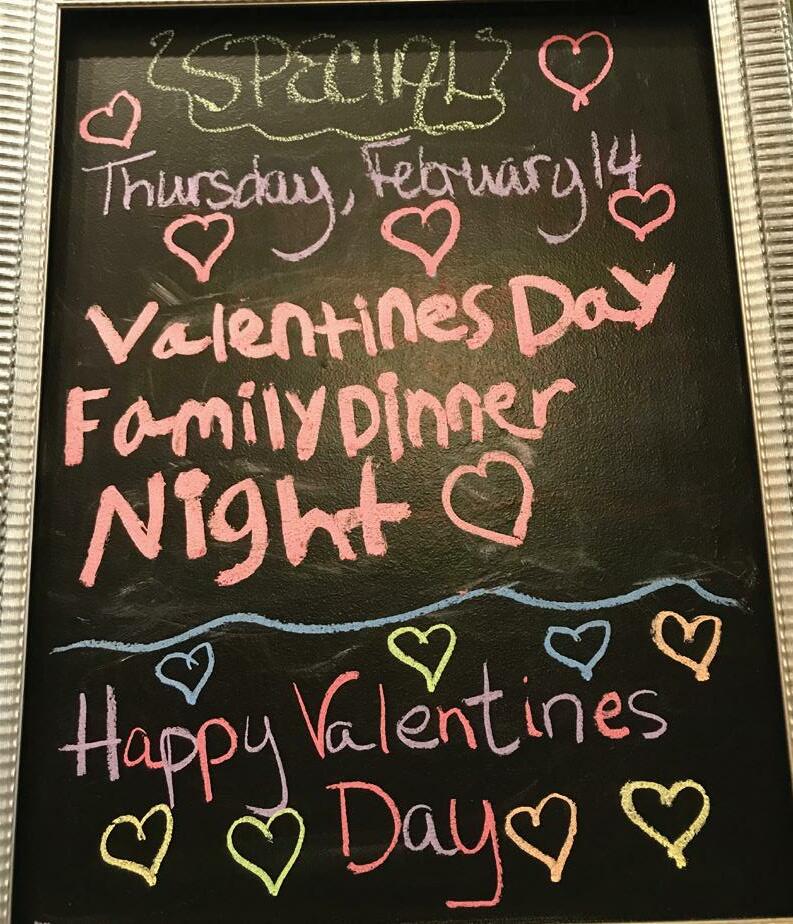 SPECIAL
Thursday, February 14
Valentines Day
Family Dinner
Night
Happy Valentines
Day